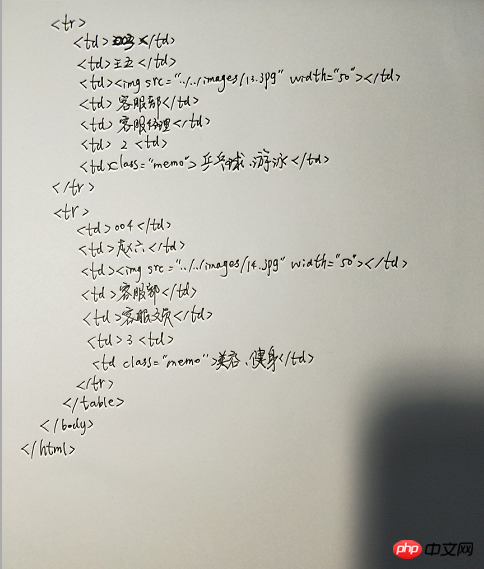 <tr>
<td>003</td>
<td>王五</td>
<td><img src="../../images/13.jpg" width="50"></td>
<td>客服部</td>
<td>客服经理</td>
<td>2<td>
<td class="memo">乒乓球、游泳</td>
</tr>
<tr>
<td>004</td>
<td>赵六</td>
<td><img src="../../images/14.jpg" width="50"></td>
<td>客服部</td>
<td>客服文员</td>
<td>3<td>
<td class="memo">美容、健身</td>
</tr>
</table>
</body>
</html>
php 中文网